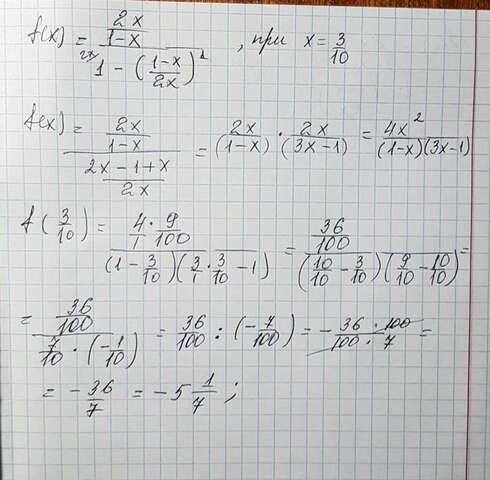 f(x) = (2x/(1-x)) / (2x\1 - ((1-x)/2x)\1) , при x = 3/10
f(x) = (2x/(1-x)) / ((2x-1+x)/2x) = 2x/(1-x) · 2x/(3x-1) = 4x²/((1-x)(3x-1))
f(3/10) = (4/1 · 9/100) / ((1 - 3/10)(3/1 · 3/10 - 1)) = (36/100) / ((10/10 - 3/10)(9/10 - 10/10)) =
= (36/100) / (7/10 · (-1/10)) = 36/100 : (-7/100) = - (36 · 100)/(100 · 7) =
= - 36/7 = - 5 1/7 ;